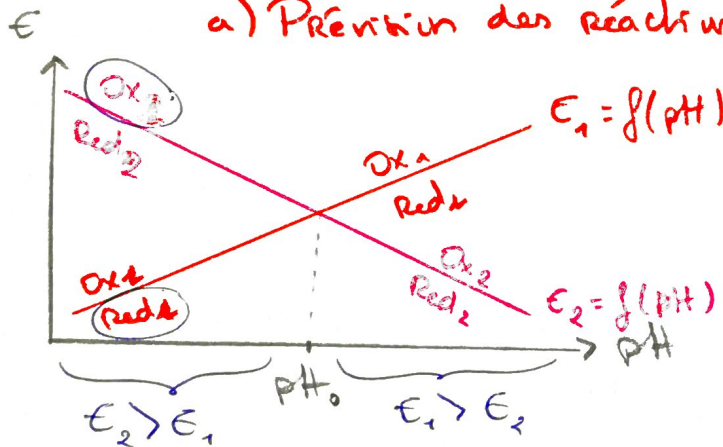 a) Prévision des réactiv
ϵ
Ox₂
Red₂
ϵ₁ = f(pH)
Ox₁
Red₁
Ox₁
Red₁
Ox₂
Red₂
ϵ₂ = f(pH)
pH
pH₀
ϵ₂ > ϵ₁
ϵ₁ > ϵ₂